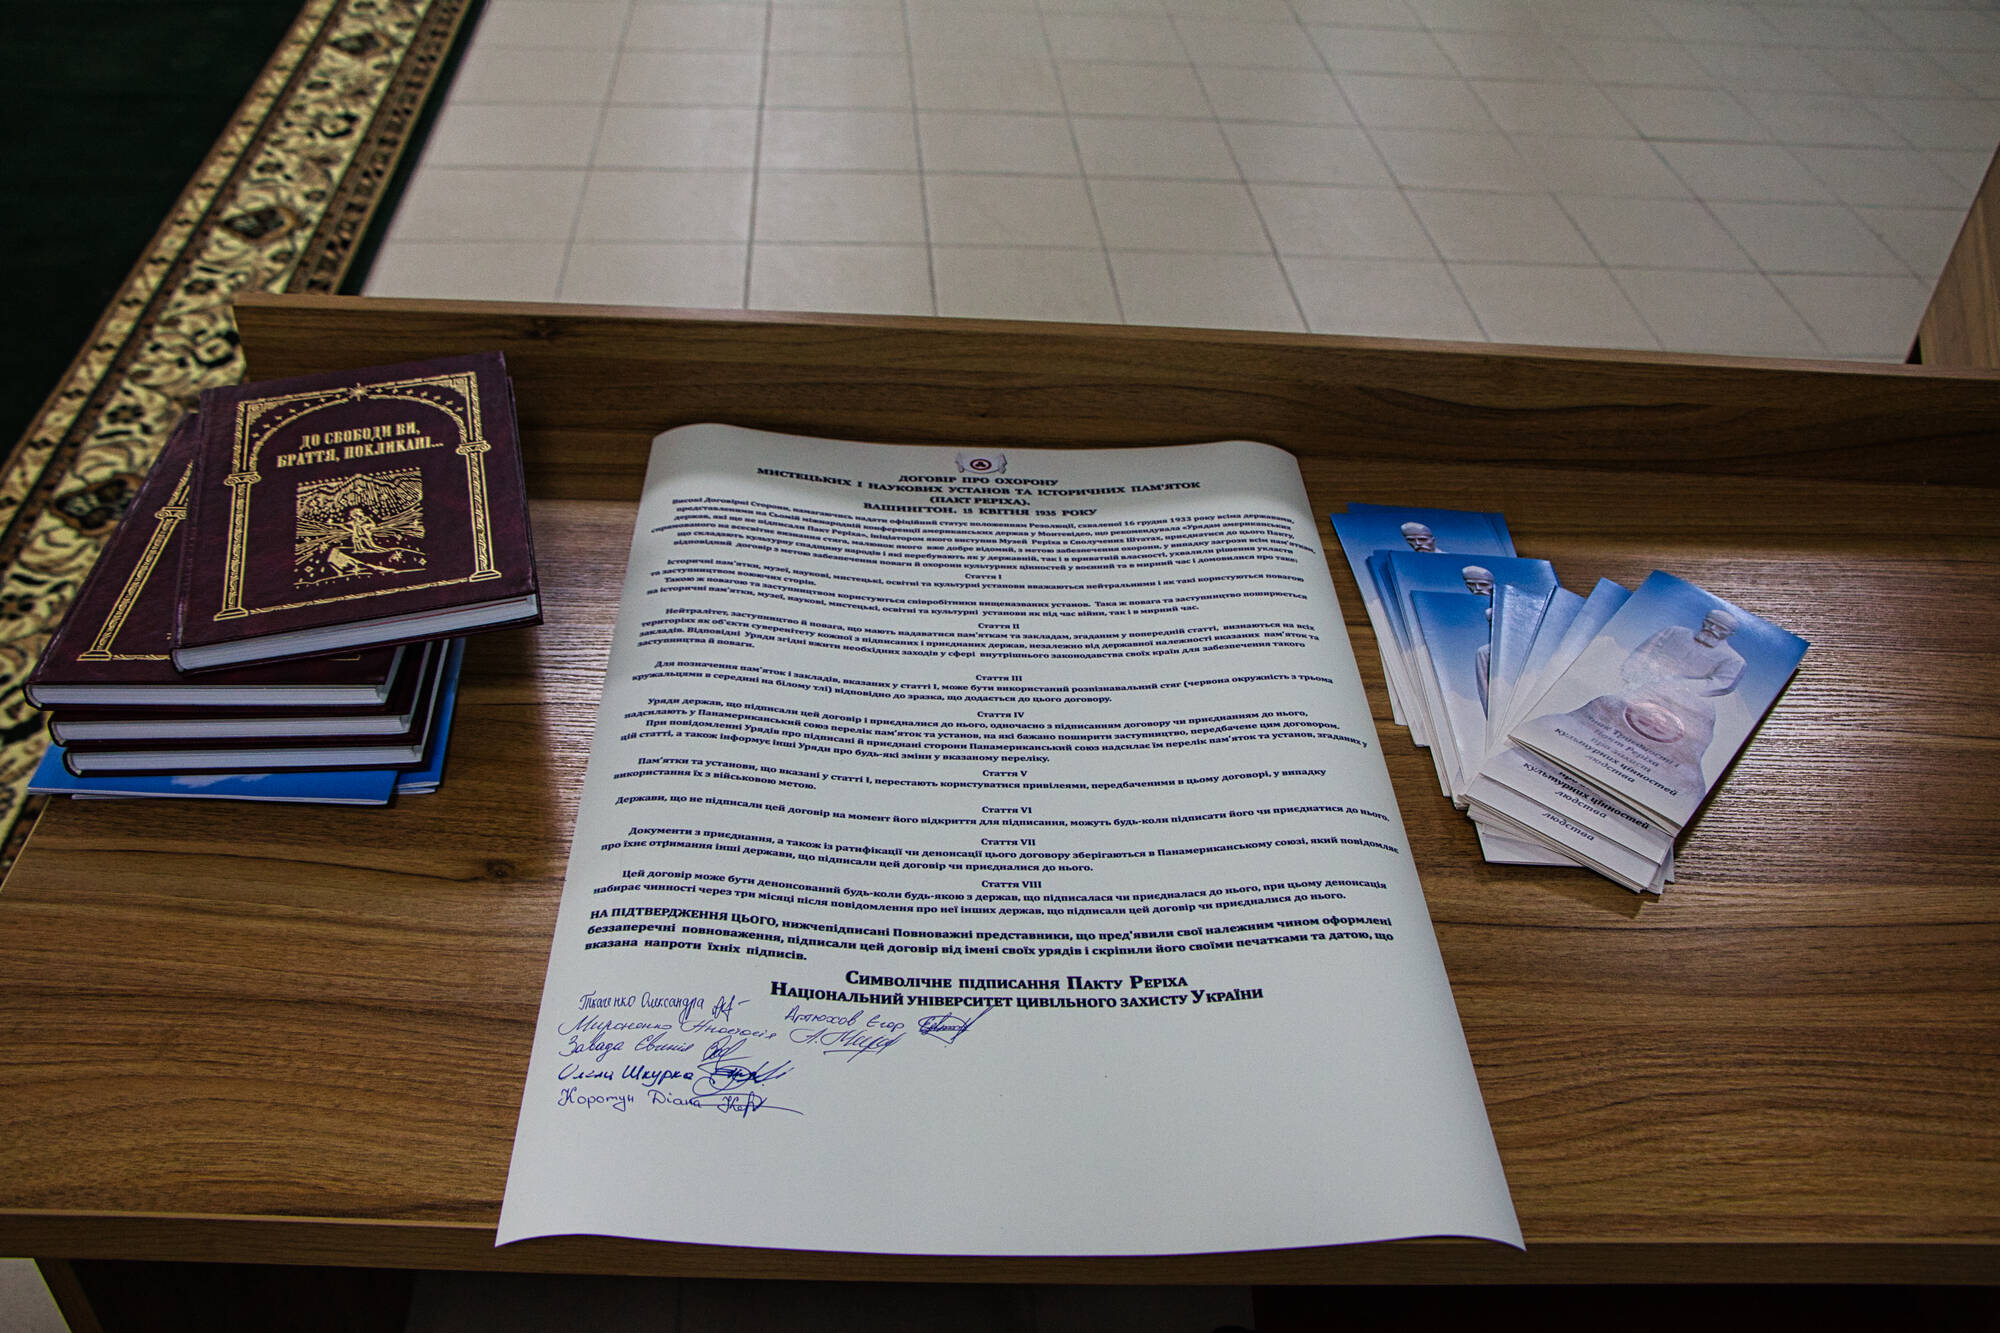 ДО СВОБОДИ ВИ,
БРАТТЯ, ПОКЛИКАНІ...
ДОГОВІР ПРО ОХОРОНУ
МИСТЕЦЬКИХ І НАУКОВИХ УСТАНОВ ТА ІСТОРИЧНИХ ПАМ'ЯТОК
(ПАКТ РЕРІХА).
ВАШИНГТОН. 15 КВІТНЯ 1935 РОКУ
Високі Договірні Сторони, намагаючись надати офіційний статус положенням Резолюції, схваленої 16 грудня 1933 року всіма державами,
представленими на Сьомій міжнародній конференції американських держав у Монтевідео, що рекомендувала «Урядам американських
держав, які ще не підписали Пакт Реріха», ініціатором якого виступив Музей Реріха в Сполучених Штатах, приєднатися до цього Пакту,
спрямованого на всесвітнє визнання стяга, малюнок якого вже добре відомий, з метою забезпечення охорони, у випадку загрози всім пам'яткам,
що складають культурну спадщину народів і які перебувають як у державній, так і в приватній власності, ухвалили рішення укласти
відповідний договір з метою забезпечення поваги й охорони культурних цінностей у воєнний та в мирний час і домовилися про таке:
Стаття I
Історичні пам'ятки, музеї, наукові, мистецькі, освітні та культурні установи вважаються нейтральними і як такі користуються повагою
та заступництвом воюючих сторін.
Такою ж повагою та заступництвом користуються співробітники вищеназваних установ. Така ж повага та заступництво поширюється
на історичні пам'ятки, музеї, наукові, мистецькі, освітні та культурні установи як під час війни, так і в мирний час.
Стаття II
Нейтралітет, заступництво й повага, що мають надаватися пам'яткам та закладам, згаданим у попередній статті, визнаються на всіх
територіях як об'єкти суверенітету кожної з підписаних і приєднаних держав, незалежно від державної належності вказаних пам'яток та
закладів. Відповідні Уряди згідні вжити необхідних заходів у сфері внутрішнього законодавства своїх країн для забезпечення такого
заступництва й поваги.
Стаття III
Для позначення пам'яток і закладів, вказаних у статті I, може бути використаний розпізнавальний стяг (червона окружність з трьома
кружальцями в середині на білому тлі) відповідно до зразка, що додається до цього договору.
Стаття IV
Уряди держав, що підписали цей договір і приєдналися до нього, одночасно з підписанням договору чи приєднанням до нього,
надсилають у Панамериканський союз перелік пам'яток та установ, на які бажано поширити заступництво, передбачене цим договором.
При повідомленні Урядів про підписані й приєднані сторони Панамериканський союз надсилає їм перелік пам'яток та установ, згаданих у
цій статті, а також інформує інші Уряди про будь-які зміни у вказаному переліку.
Стаття V
Пам'ятки та установи, що вказані у статті I, перестають користуватися привілеями, передбаченими в цьому договорі, у випадку
використання їх з військовою метою.
Стаття VI
Держави, що не підписали цей договір на момент його відкриття для підписання, можуть будь-коли підписати його чи приєднатися до нього.
Стаття VII
Документи з приєднання, а також із ратифікації чи денонсації цього договору зберігаються в Панамериканському союзі, який повідомляє
про їхнє отримання інші держави, що підписали цей договір чи приєдналися до нього.
Стаття VIII
Цей договір може бути денонсований будь-коли будь-якою з держав, що підписалася чи приєдналася до нього, при цьому денонсація
набирає чинності через три місяці після повідомлення про неї інших держав, що підписали цей договір чи приєдналися до нього.
НА ПІДТВЕРДЖЕННЯ ЦЬОГО, нижчепідписані Повноважні представники, що пред'явили свої належним чином оформлені
беззаперечні повноваження, підписали цей договір від імені своїх урядів і скріпили його своїми печатками та датою, що
вказана напроти їхніх підписів.
Символічне підписання Пакту Реріха
Національний університет цивільного захисту України
Ткаченко Олександра
Артюхов Єгор
Мироненко Анастасія
Завада Євгенія
Олели Шкурка
Коротун Діана
Пакт Реріха
про захист
культурних цінностей
людства
культурних цінностей
людства
людства